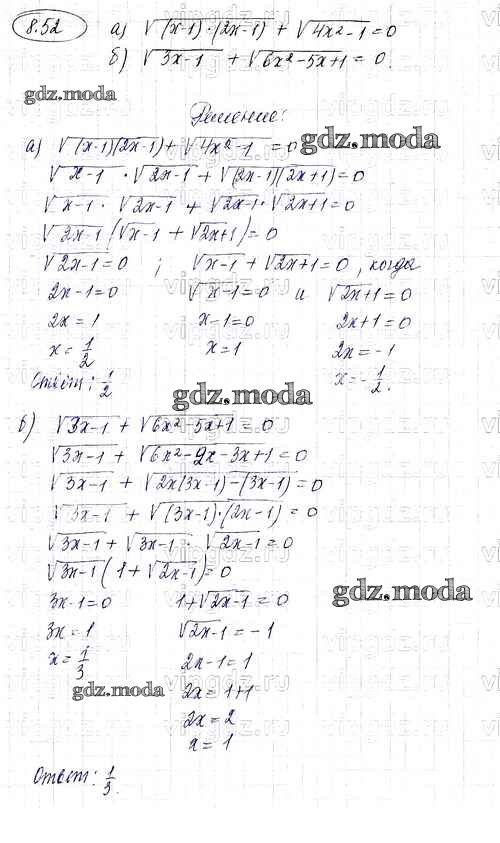 8.52 а) √(x-1)·(2x-1) + √4x²-1 = 0
б) √3x-1 + √6x²-5x+1 = 0.
gdz.moda
Решение:
gdz.moda
а) √(x-1)(2x-1) + √4x²-1 = 0
√x-1 · √2x-1 + √(2x-1)(2x+1) = 0
√x-1 · √2x-1 + √2x-1 · √2x+1 = 0
√2x-1 (√x-1 + √2x+1) = 0
√2x-1 = 0 ; √x-1 + √2x+1 = 0, когда
2x-1=0 √x-1=0 и √2x+1=0
2x=1 x-1=0 2x+1=0
x=1/2 x=1 2x=-1
Ответ: 1/2 x=-1/2.
gdz.moda
б) √3x-1 + √6x²-5x+1 = 0
√3x-1 + √6x²-2x-3x+1 = 0
√3x-1 + √2x(3x-1)-(3x-1) = 0
√3x-1 + √(3x-1)·(2x-1) = 0
√3x-1 + √3x-1 · √2x-1 = 0
√3x-1 (1+√2x-1) = 0
gdz.moda
3x-1=0 1+√2x-1 = 0
3x=1 √2x-1 = -1
x=1/3 2x-1=1
gdz.moda 2x=1+1
2x=2
x=1
Ответ: 1/3.